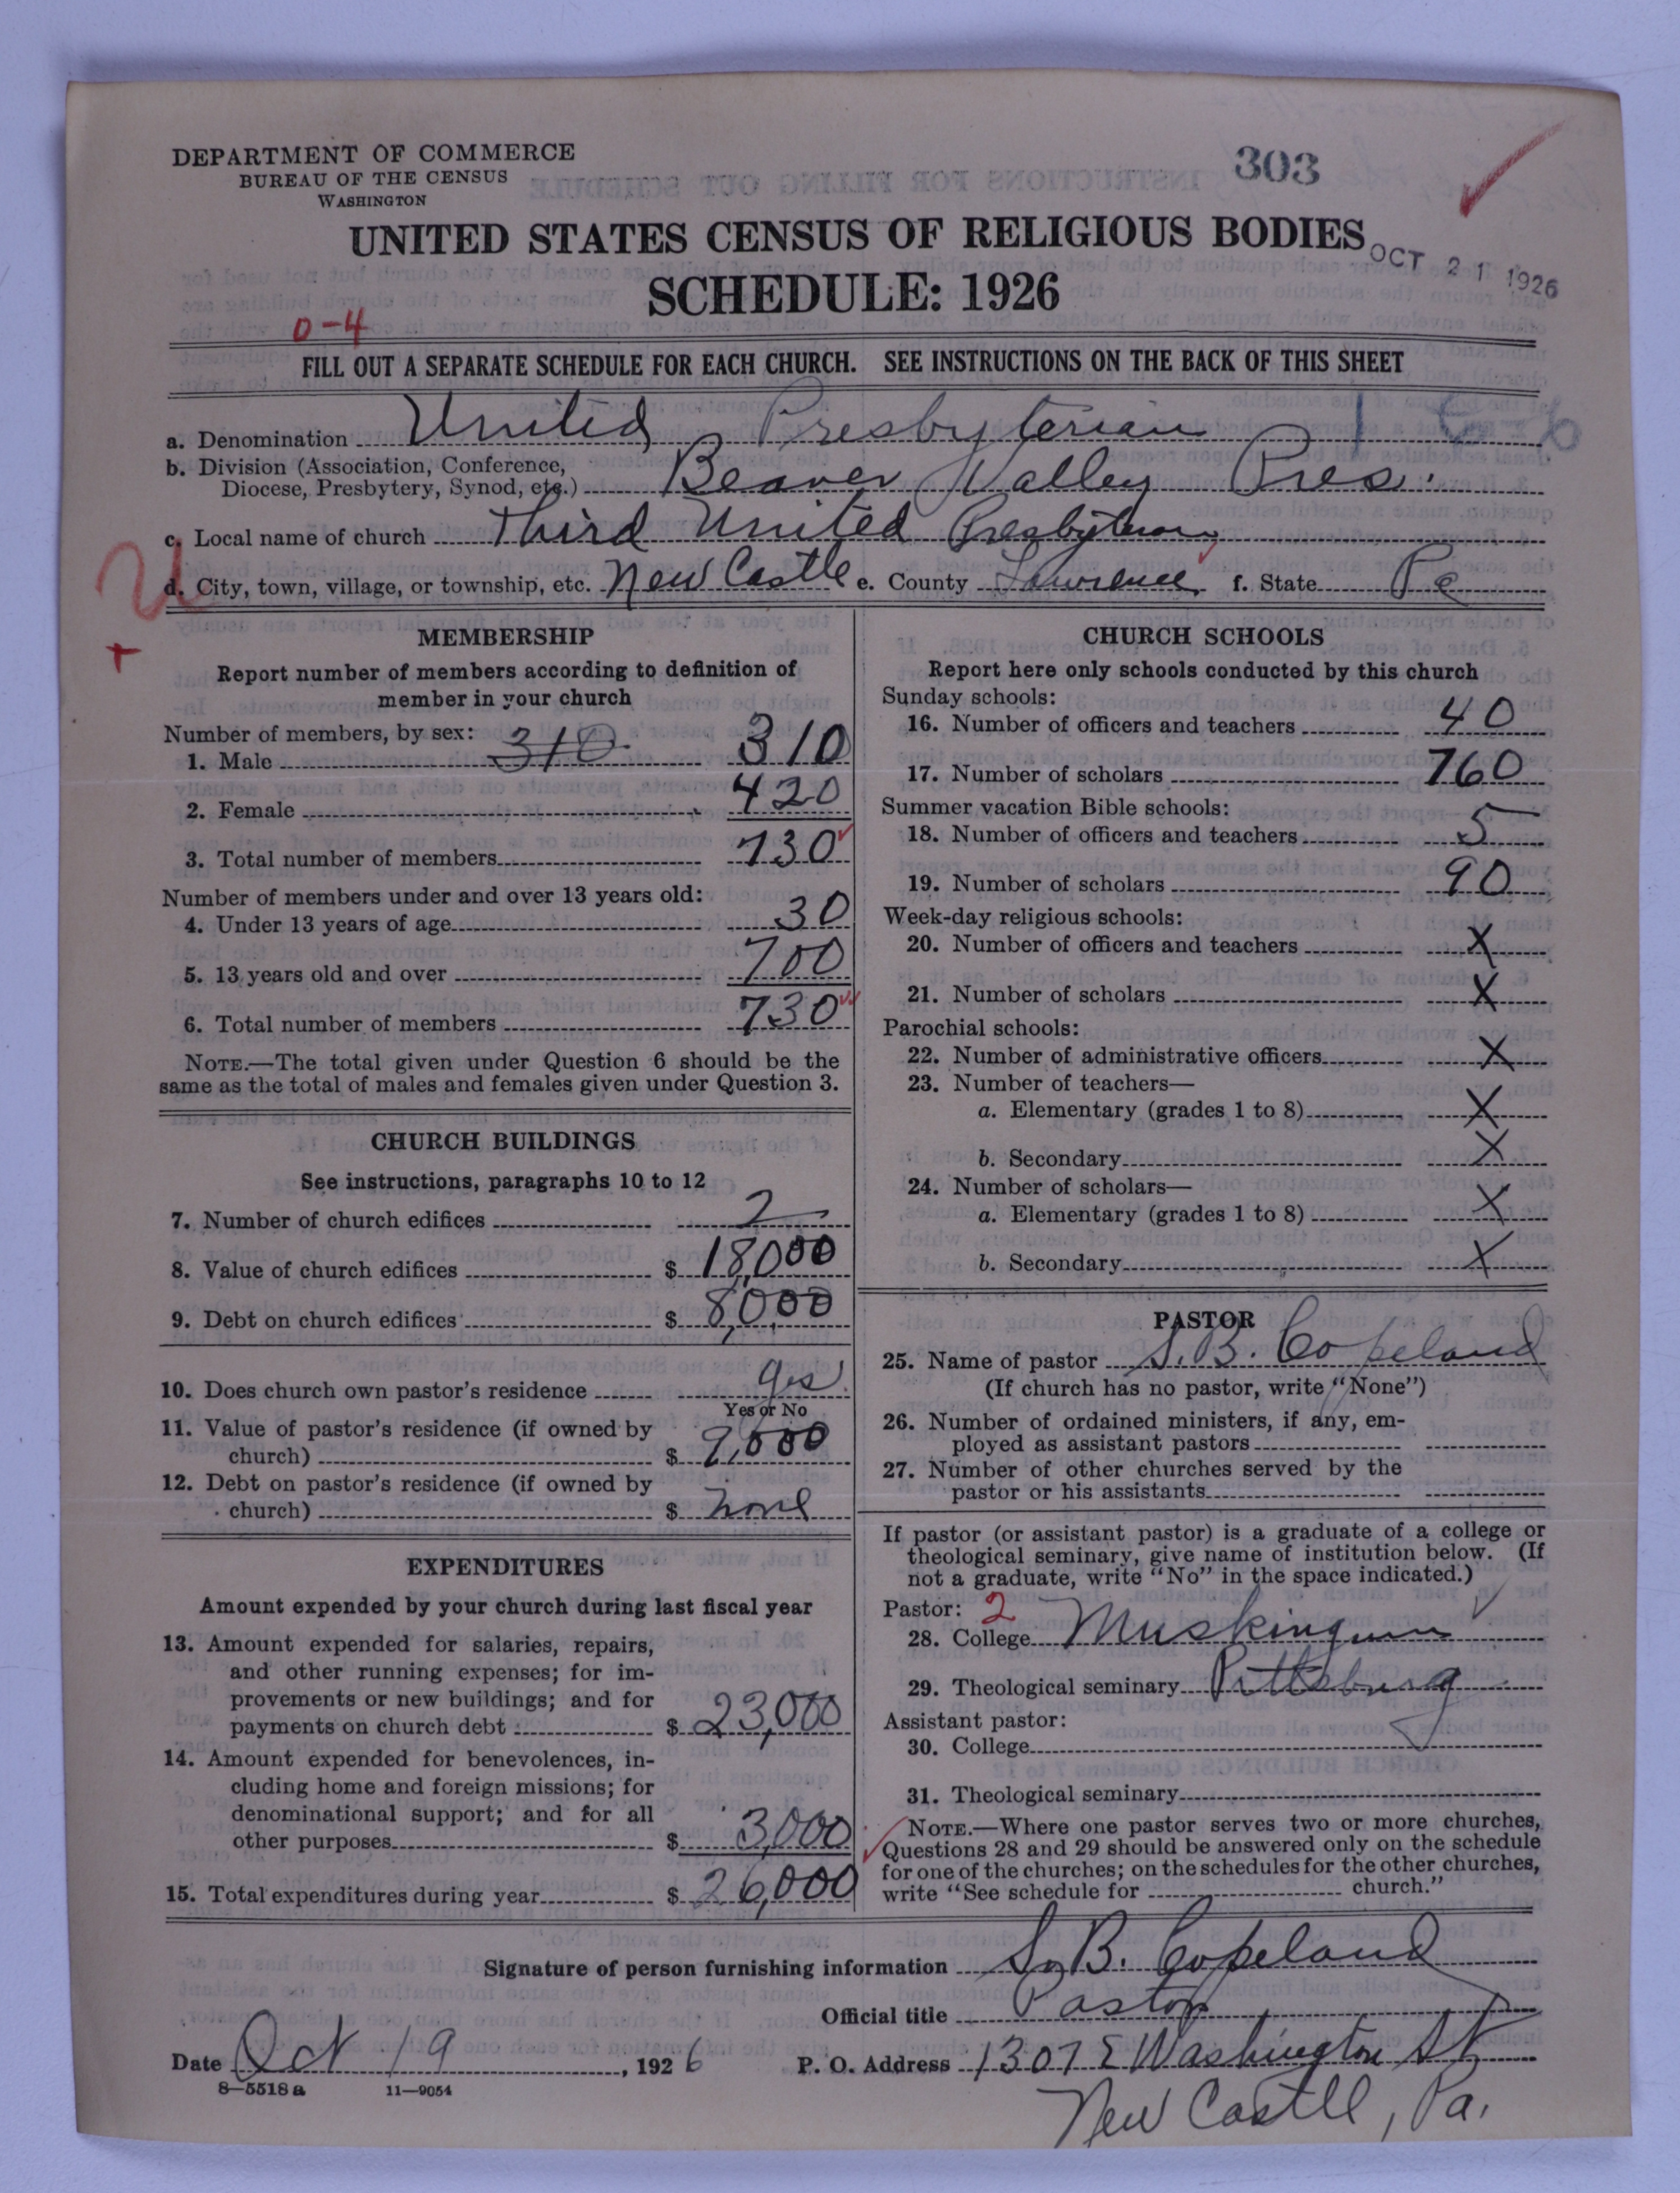 303
DEPARTMENT OF COMMERCE
BUREAU OF THE CENSUS
WASHINGTON
UNITED STATES CENSUS OF RELIGIOUS BODIES
OCT 21 1926
SCHEDULE: 1926
0-4
FILL OUT A SEPARATE SCHEDULE FOR EACH CHURCH. SEE INSTRUCTIONS ON THE BACK OF THIS SHEET
a. Denomination United Presbyterian
b. Division (Association, Conference,
Diocese, Presbytery, Synod, etc.) Beaver Valley Pres.
c. Local name of church Third United Presbyterian
d. City, town, village, or township, etc. New Castle e. County Lawrence f. State Pa
MEMBERSHIP
Report number of members according to definition of
member in your church
Number of members, by sex:
1. Male 310 310
2. Female 420
3. Total number of members 730
Number of members under and over 13 years old:
4. Under 13 years of age 30
5. 13 years old and over 700
6. Total number of members 730
NOTE.—The total given under Question 6 should be the
same as the total of males and females given under Question 3.
CHURCH BUILDINGS
See instructions, paragraphs 10 to 12
7. Number of church edifices 2
8. Value of church edifices $ 18,000
9. Debt on church edifices $ 8,000
10. Does church own pastor's residence yes
Yes or No
11. Value of pastor's residence (if owned by
church) $ 9,000
12. Debt on pastor's residence (if owned by
church) $ none
EXPENDITURES
Amount expended by your church during last fiscal year
13. Amount expended for salaries, repairs,
and other running expenses; for im-
provements or new buildings; and for
payments on church debt $ 23,000
14. Amount expended for benevolences, in-
cluding home and foreign missions; for
denominational support; and for all
other purposes $ 3,000
15. Total expenditures during year $ 26,000
CHURCH SCHOOLS
Report here only schools conducted by this church
Sunday schools:
16. Number of officers and teachers 40
17. Number of scholars 760
Summer vacation Bible schools:
18. Number of officers and teachers 5
19. Number of scholars 90
Week-day religious schools:
20. Number of officers and teachers X
21. Number of scholars X
Parochial schools:
22. Number of administrative officers X
23. Number of teachers—
a. Elementary (grades 1 to 8) X
b. Secondary X
24. Number of scholars—
a. Elementary (grades 1 to 8) X
b. Secondary X
PASTOR
25. Name of pastor S. B. Copeland
(If church has no pastor, write "None")
26. Number of ordained ministers, if any, em-
ployed as assistant pastors
27. Number of other churches served by the
pastor or his assistants
If pastor (or assistant pastor) is a graduate of a college or
theological seminary, give name of institution below. (If
not a graduate, write "No" in the space indicated.)
Pastor: 2
28. College Muskingum
29. Theological seminary Pittsburg
Assistant pastor:
30. College
31. Theological seminary
NOTE.—Where one pastor serves two or more churches,
Questions 28 and 29 should be answered only on the schedule
for one of the churches; on the schedules for the other churches,
write "See schedule for church."
Signature of person furnishing information S. B. Copeland
Official title Pastor
Date Oct 19, 1926 P. O. Address 1307 E Washington St
8—5518a 11—9054
New Castle, Pa.